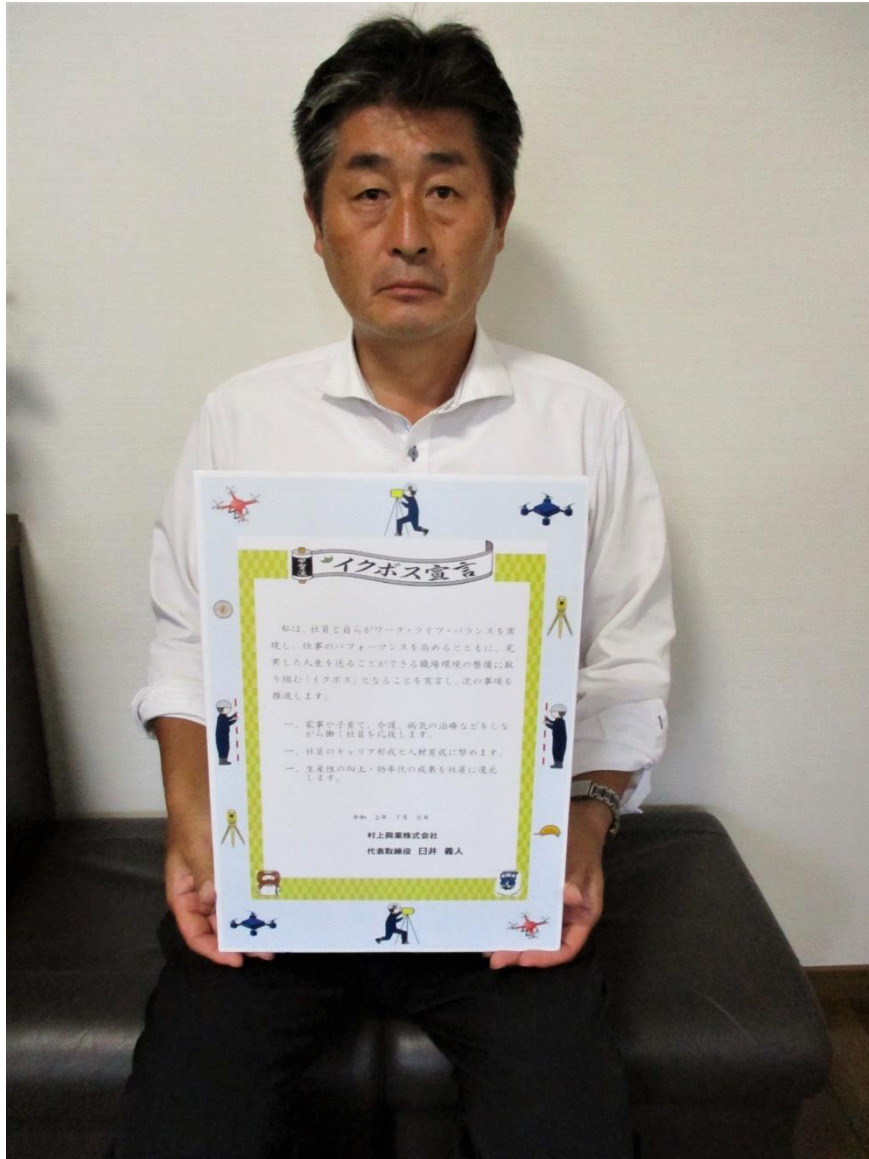 イクボス宣言
私は、社員と自らがワーク・ライフ・バランスを実
現し、仕事のパフォーマンスを高めるとともに、充
実した人生を送ることができる職場環境の整備に取
り組む「イクボス」となることを宣言し、次の事項を
推進します。
一、家事や子育て、介護、病気の治療などをしな
がら働く社員を応援します。
一、社員のキャリア形成と人材育成に努めます。
一、生産性の向上・効率化の成果を社員に還元
します。
令和 2年 7月 6日
村上興業株式会社
代表取締役 臼井 義人